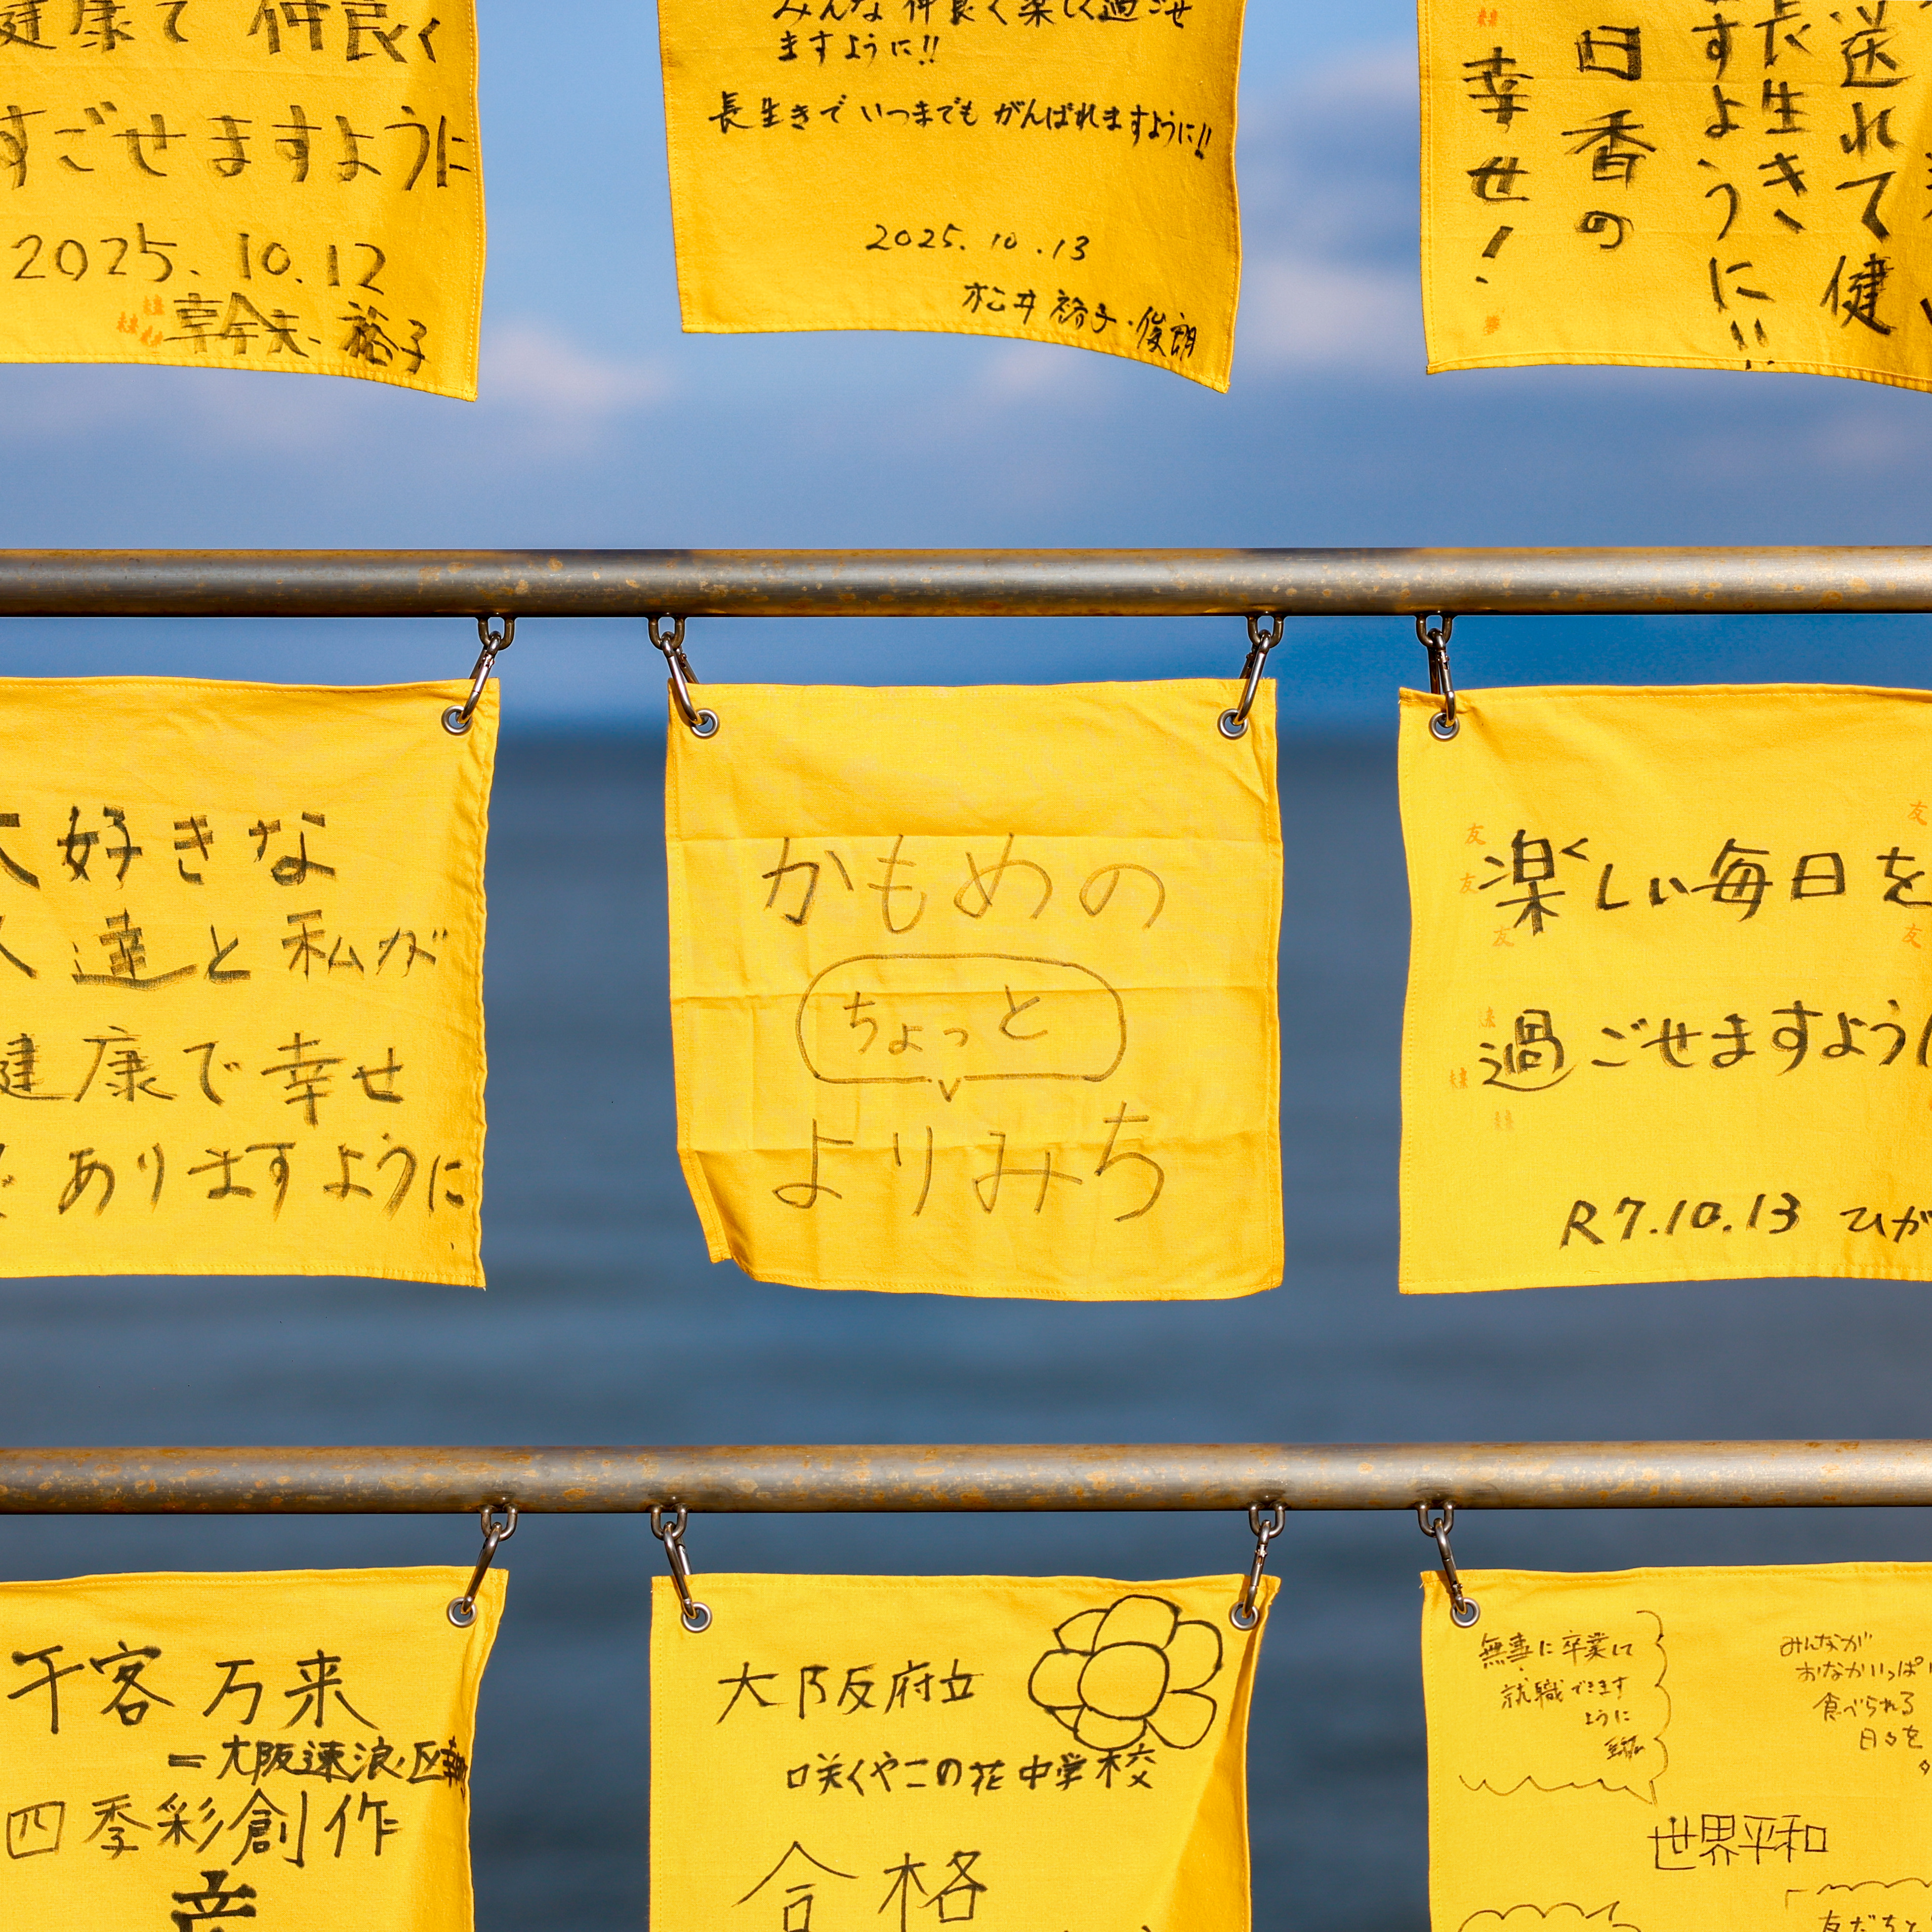 健康で仲良く
すごせますように
2025.10.12
裕子
みんな仲良く楽しく過ごせ
ますように!!
長生きでいつまでもがんばれますように!!
2025.10.13
松井裕子・俊朗
送れて健
長生き
すように!!
日香の
幸せ!
大好きな
人達と私が
健康で幸せ
ありますように
かもめの
ちょっと
よりみち
楽しい毎日を
過ごせますように
R7.10.13 ひが
千客万来
四季彩創作
大阪府立
咲くやこの花中学校
合格
無事に卒業して
就職できます
ように
みんなが
おなかいっぱい
食べられる
日々を
世界平和
友だちと